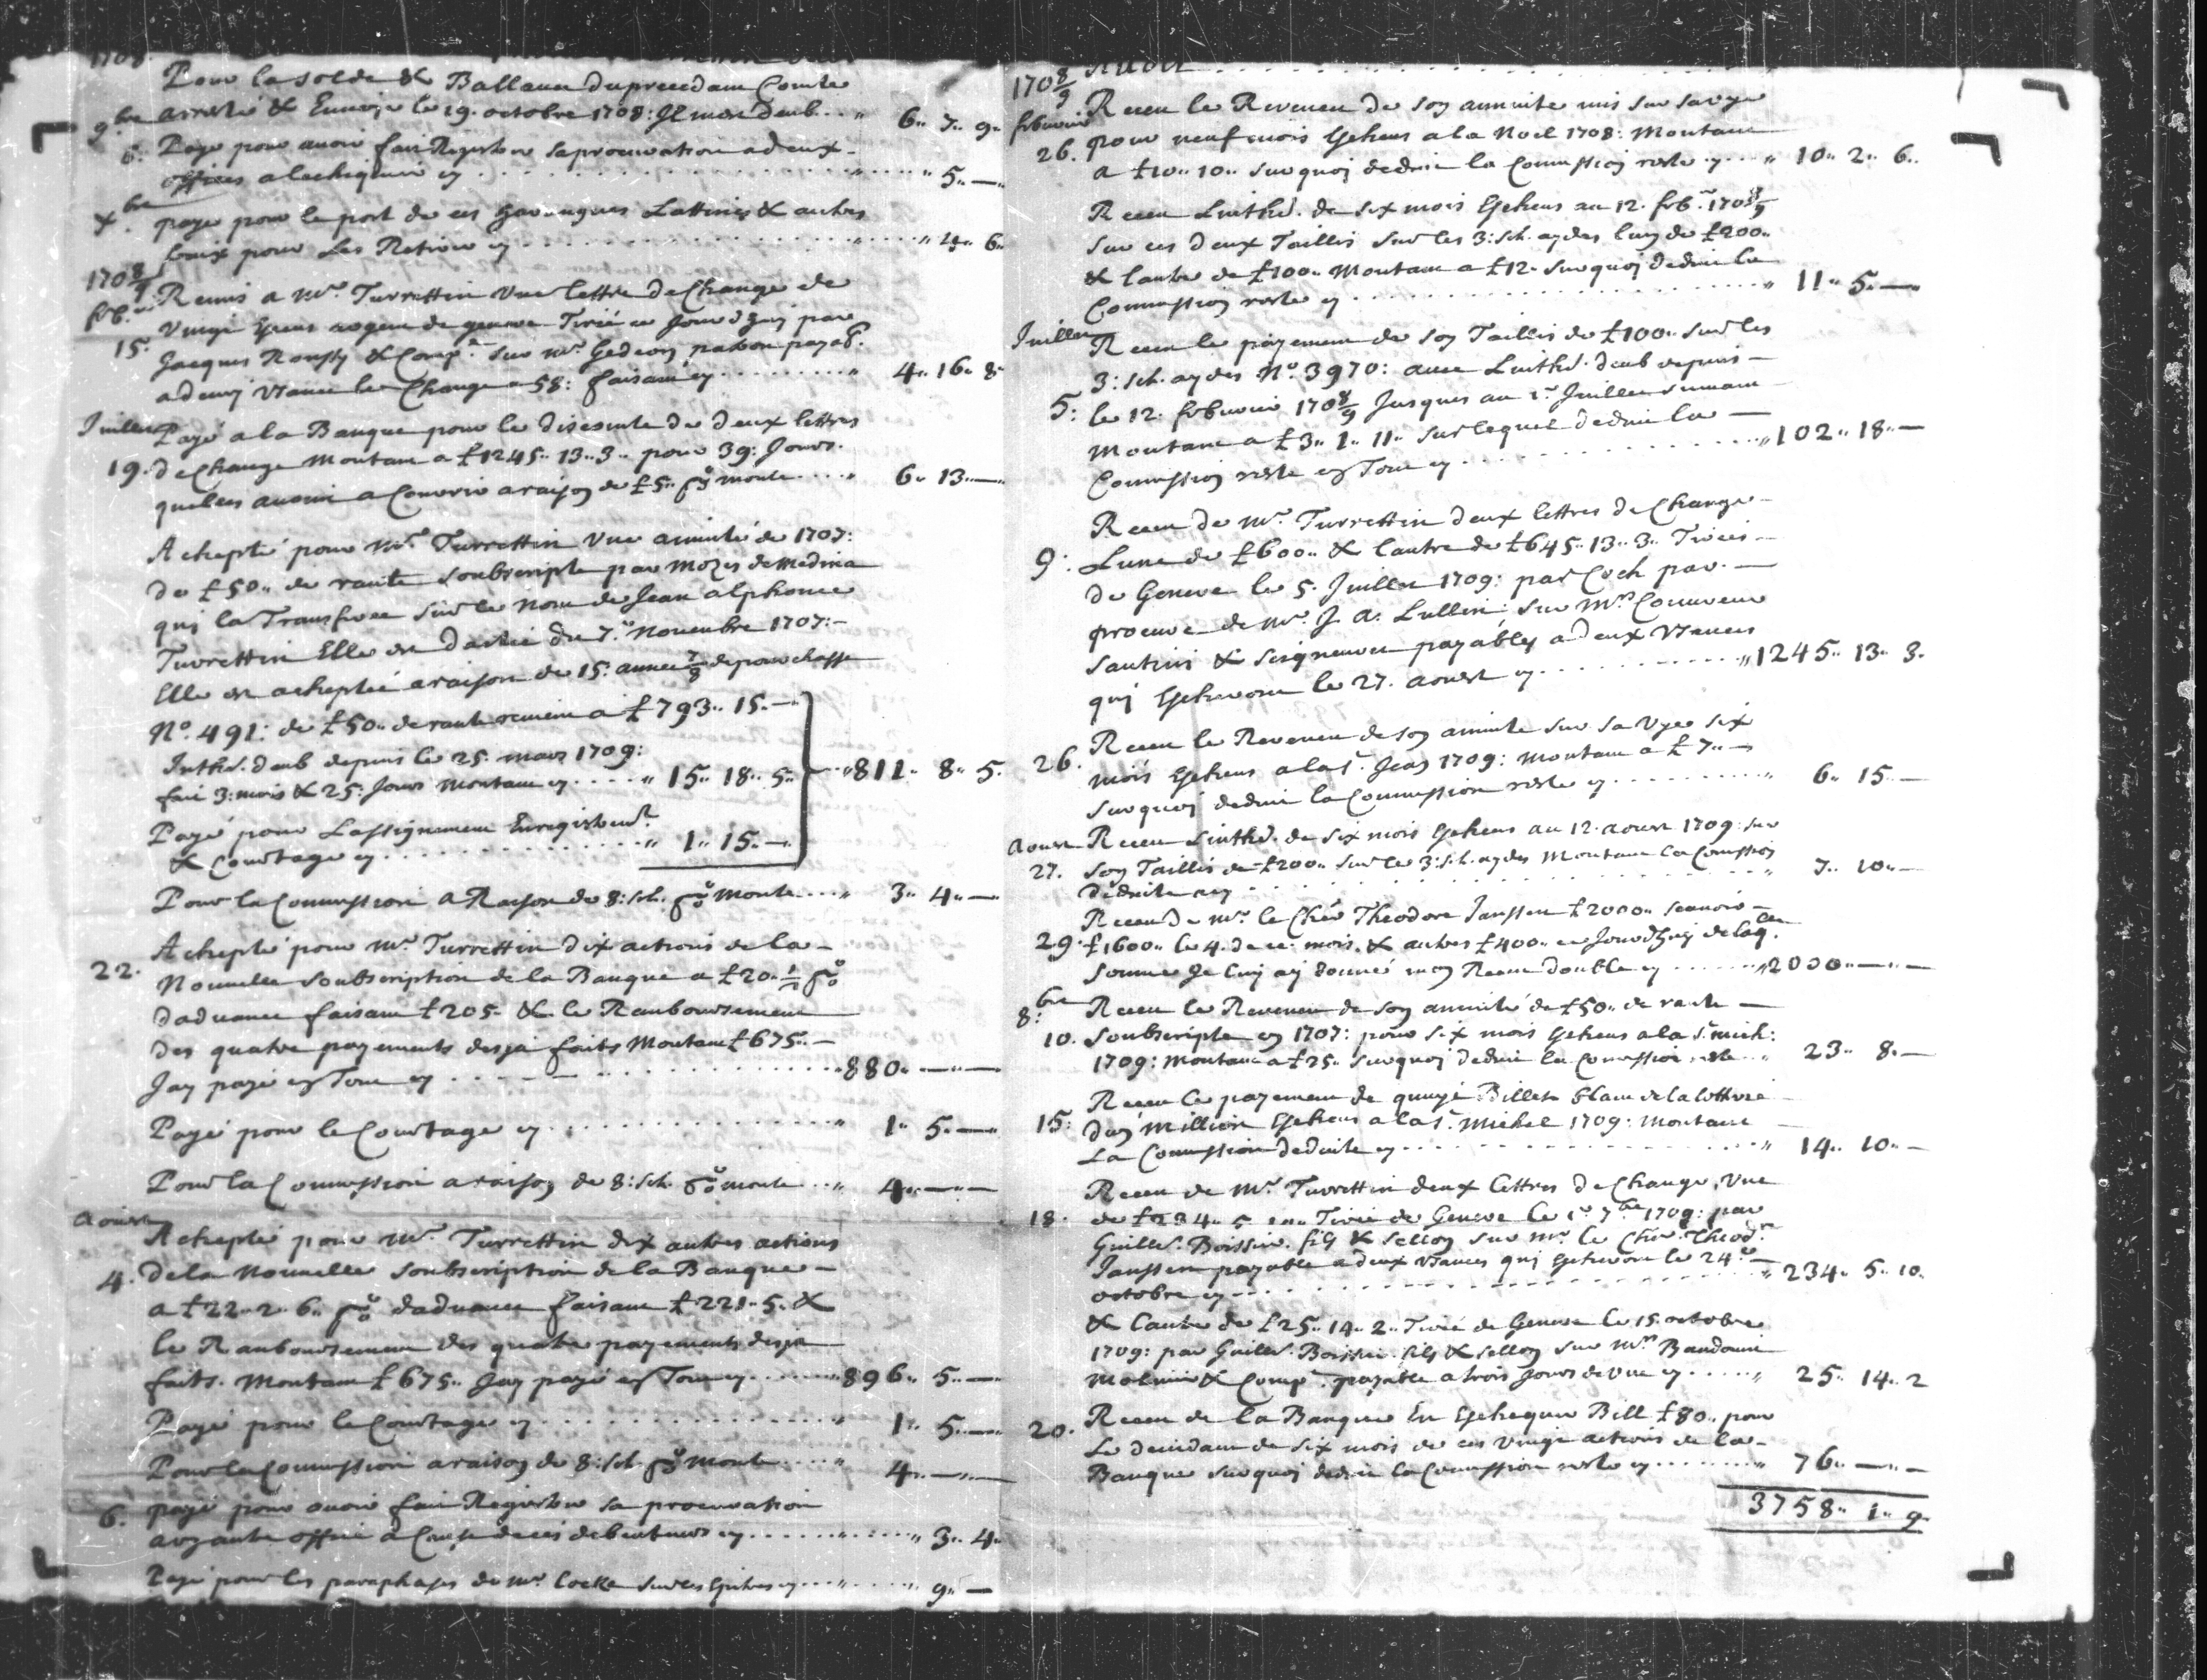 1708
Pour la solde & Ballance du precedam Comte
9.bre arresté & Envoye le 19. octobre 1708: Il me doub.. „ 6„ 7„ 9„
6: Paye pour avoir fair Registrer sa procuration a deux
offices a lechiquier ey . . . „ „ 5„ —
Xbre paye pour le port de ces Harangues Lattines & autres
fraix pour Les Retirer ey . . . „ „ 4„ 6„
1708/9
feb.r Remis a Mr. Turrettin une lettre de Change de
15. Vingt Escus argent de geneve Tirée ce Jourdhuy par
Jacques Rousseau & Comp.e sur Mr. Gedeon patron payab.
a demy usance le Change a 58: faisant ey . . . „ 4„ 16„ 8„
Juillet Payé a la Banque pour le discomte de deux lettres
19. de Change Montant a £1245„ 13„ 3„ pour 39: Jours
quelles avoint a Courrir a raison de £5„ p% monte . . . „ 6„ 13„ —
Achepté pour Mr. Turrettin Une annuité de 1707:
de £50„ de rante soubscripte par Mozes de Medina
quj la Transferee sur le nom de Jean alphonce
Turrettin Elle est dattée du 7.e Novembre 1707:
Elle est acheptée a raison de 15: année 7/8 de pourchasse
No. 491: de £50„ de rante revient a £793„ 15„ —
Inthr. doub depuis le 25. mars 1709:
fait 3: mois & 25: Jours Montant ey . . . „ 15„ 18„ 5„ „811„ 8„ 5„
Payé pour Lassignement Enregistrem.t
& Courtage ey . . . „ 1„ 15„ —
Pour la Commission a Raison de 8: sch. p% monte . . . „ 3„ 4„ —
Achepté pour Mr. Turrettin dix actions de la
22. Nouvelle soubscription de la Banque a £20„ 1/2 p%
dadvance faisant £205„ & le Rambourcement
des quatre payements desja faits Montant £675„
Jay payé en Tout ey . . . „880„ — „ —
Payé pour le Courtage ey . . . „ 1„ 5„ —
Pour la Commission a raison de 8: sch. p% monte . . „ 4„ — „ —
Aoust Achepté pour Mr. Turrettin dix autres actions
4. de la Nouvelle soubscription de la Banque
a £22„ 2„ 6„ p% dadvance faisant £221„ 5„ &
le Rambourcement des quatre payements desja
faits. Montant £675„ Jay payé en Tout ey . . . „896„ 5„ —
Payé pour le Courtage ey . . . „ 1„ 5„ —
Pour la Commission a raison de 8: sch p% monte . . . „ 4„ — „ —
6. payé pour avoir fait Registrer sa procuration
a veante offic a Cause de ces debentures ey . . . „ „ 3„ 4„
Payé pour les paraphages de Mr. Cocke sur les ey . . . „ „ 9„ —
1708/9 Avoir . . .
febvrier Receu le Revenu de soy annuité mis sur sa vye
26. pour neuf mois Escheus a la Noel 1708: Montant
a £10„ 10„ sur quoj deduit la Commission reste ey . . „ 10„ 2„ 6„
Receu Linthr. de six mois Escheus au 12. feb.r 1708/9
sur ces deux Taillis sur les 3: sch. aydes luy de £200„
& lautre de £100„ Montant a £12„ sur quoj deduit la
Commission reste ey . . . „ 11„ 5„ —
Juillet Receu le payement de soy Taillis de £100„ sur les
3: sch. aydes No. 3970: avec Linthr. doub depuis
5: le 12. febvrier 1708/9 Jusques au 1.r Juillet suivant
Montant a £3„ 1„ 11„ sur lequel deduit la
Commission reste en Tout ey . . . „102„ 18„ —
Receu de Mr. Turrettin deux lettres de Change
9: Lune de £600„ & lautre de £645„ 13„ 3„ Tirées
de Geneve le 5. Juillet 1709: par Coch par
procure de Mr. J. A. Lullin: sur Mrs. Couvreu
Santini & Seigneuret payables a deux usances
quj Escheront le 27. aoust ey . . . „1245„ 13„ 3„
Receu le Revenu de soy annuité sur sa Vye six
26. mois Escheus a la St. Jean 1709: Montant a £7„ —
sur quoj deduit la Commission reste ey . . . „ 6„ 15 —
Aoust Receu Linthr. de six mois Escheus au 12. aoust 1709: sur
27. soy Taillis de £200„ sur les 3: sch. aydes Montant la Commission
deduite a ey . . . „ 7„ 10„ —
Receu de Mr. le Cher. Theodore Janssen £2000„ scavoir
29. £1600„ le 4. de ce mois. & autres £400„ ce Jourdhuy de laq.lle
somme Je luy ay donné moy Receu double ey . . . „2000„ — „ —
8:bre Receu le Revenu de soy annuité de £50„ de rante
10. soubscripte en 1707: pour six mois Escheus a la St. Mich:
1709: Montant a £25„ sur quoj deduit la Commission reste . . „ 23„ 8„ —
Receu le payement de quinze Billets blanc de la lotterie
15: duy Million Escheus a la St. Michel 1709: Montant
La Commission deduite ey . . . „ 14„ 10„ —
Receu de Mr. Turrettin deux lettres de Change, Une
18. de £234„ 5„ 10„ Tirée de Geneve le 1.r 7bre 1709: par
Guille. Boissier fils & Sellon sur Mr. le Cher. Theod.re
Janssen payable a deux usances quj Escheront le 24e
octobre ey . . . „ 234„ 5„ 10„
& lautre de £25„ 14„ 2„ Tirée de Geneve le 15. octobre
1709: par Guille. Boissier fils & Sellon sur Mrs. Baudouin
Molinier & Comp.e payable a trois Jours de vue ey . . . „ 25„ 14„ 2
20. Receu de la Banque En Eschequer Bill £80„ pour
Le dividant de six mois de ces vingt actions de la
Banque sur quoj deduit la Commission reste ey . . . „ 76„ — „ —
3758„ 1„ 9„